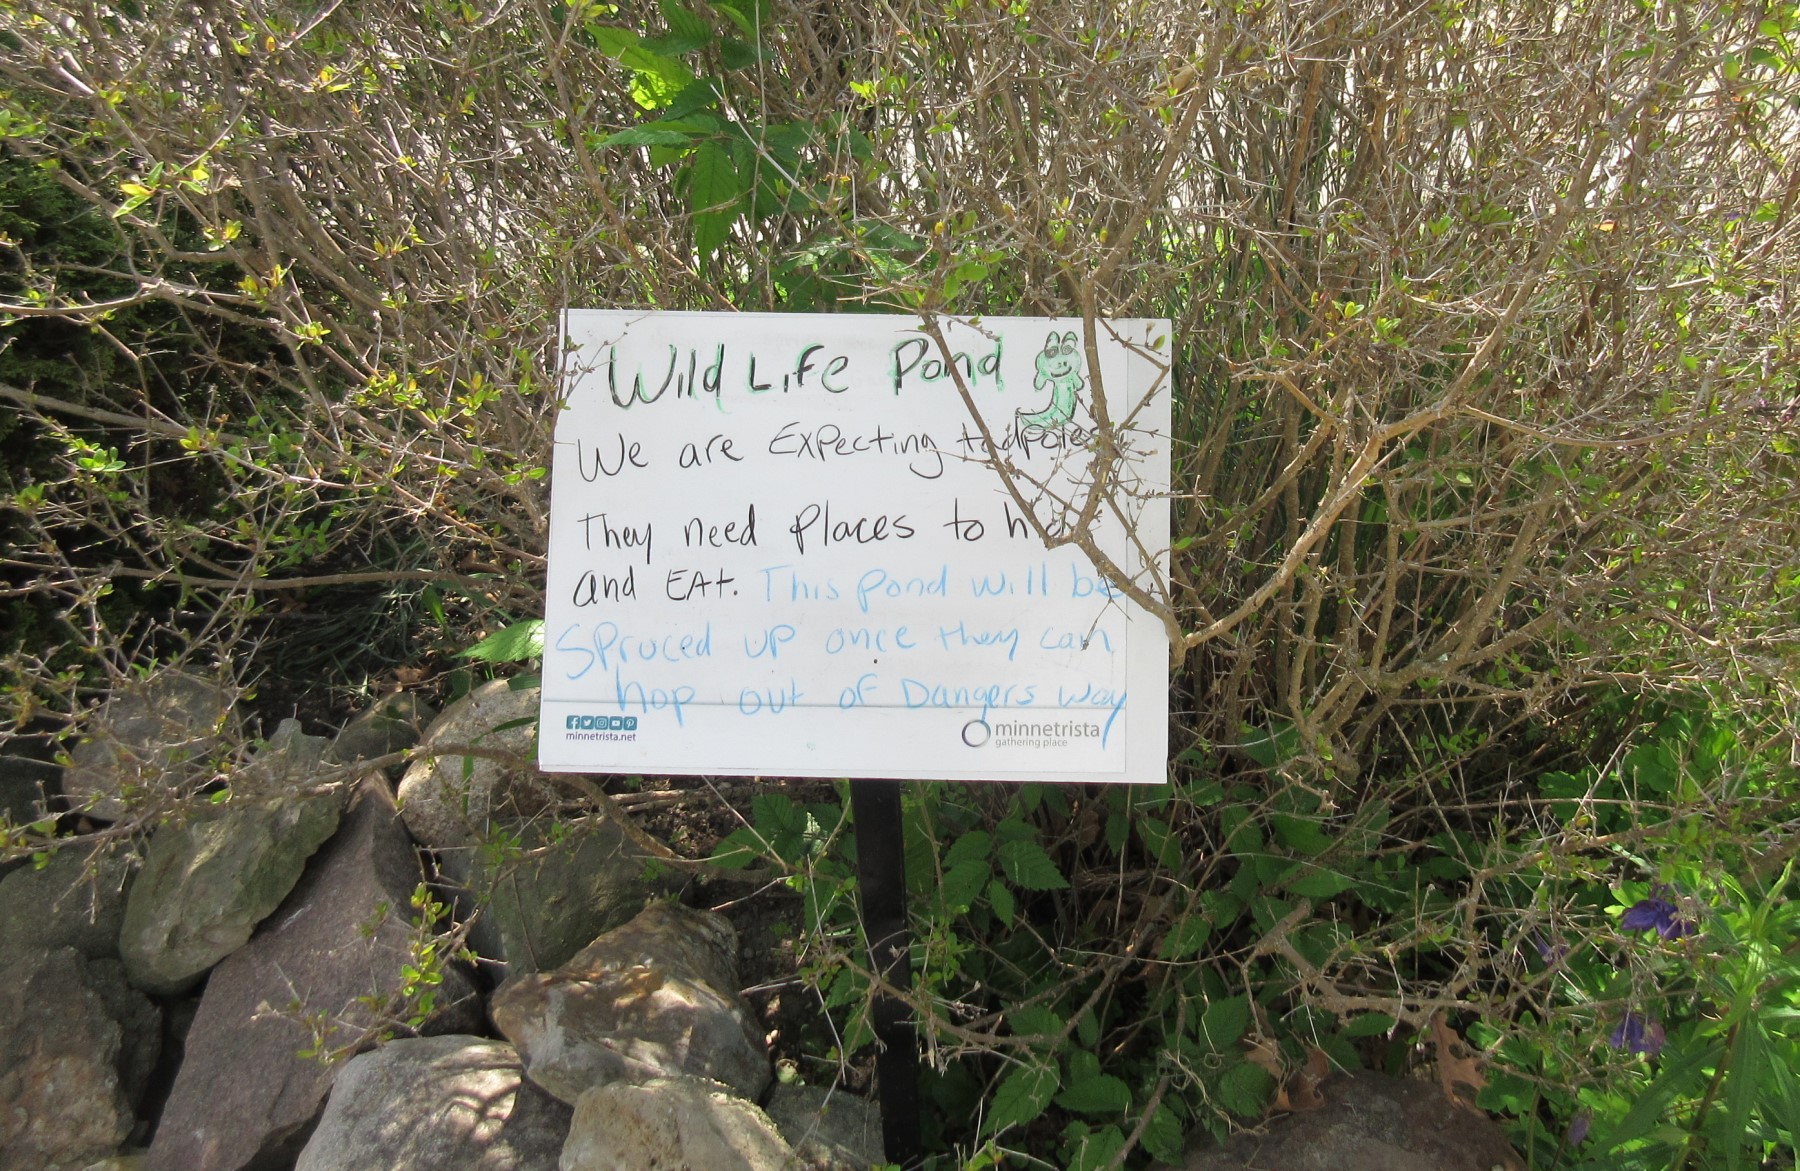 Wild Life Pond
We are Expecting tadpoles
They need places to
and EAt. This pond will be
Spruced up once they can
hop out of Dangers way
minnetrista.net
minnetrista
gathering place